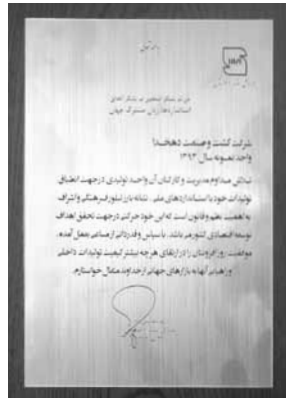 شرکت کشت و صنعت دهخدا
واحد نمونه سال ۱۳۹۳
تلاش مداوم مدیریت و کارکنان آن واحد تولیدی در جهت انطباق
تولیدات خود با استانداردهای ملی، نشانه بارز تبلور فرهنگی و اشراف
به اهمیت نظم و قانون است که این خود حرکتی در جهت تحقق اهداف
توسعه اقتصادی کشور می باشد. با سپاس و قدردانی از مساعی بعمل آمده،
موفقیت روز افزونتان را در ارتقای هر چه بیشتر کیفیت تولیدات داخلی
و راهیابی آنها به بازارهای جهانی از خداوند متعال خواستارم.